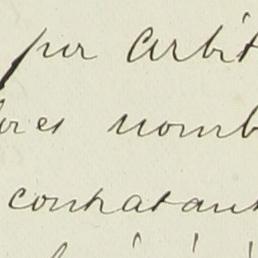 por Arbit
ores nomb
contratant